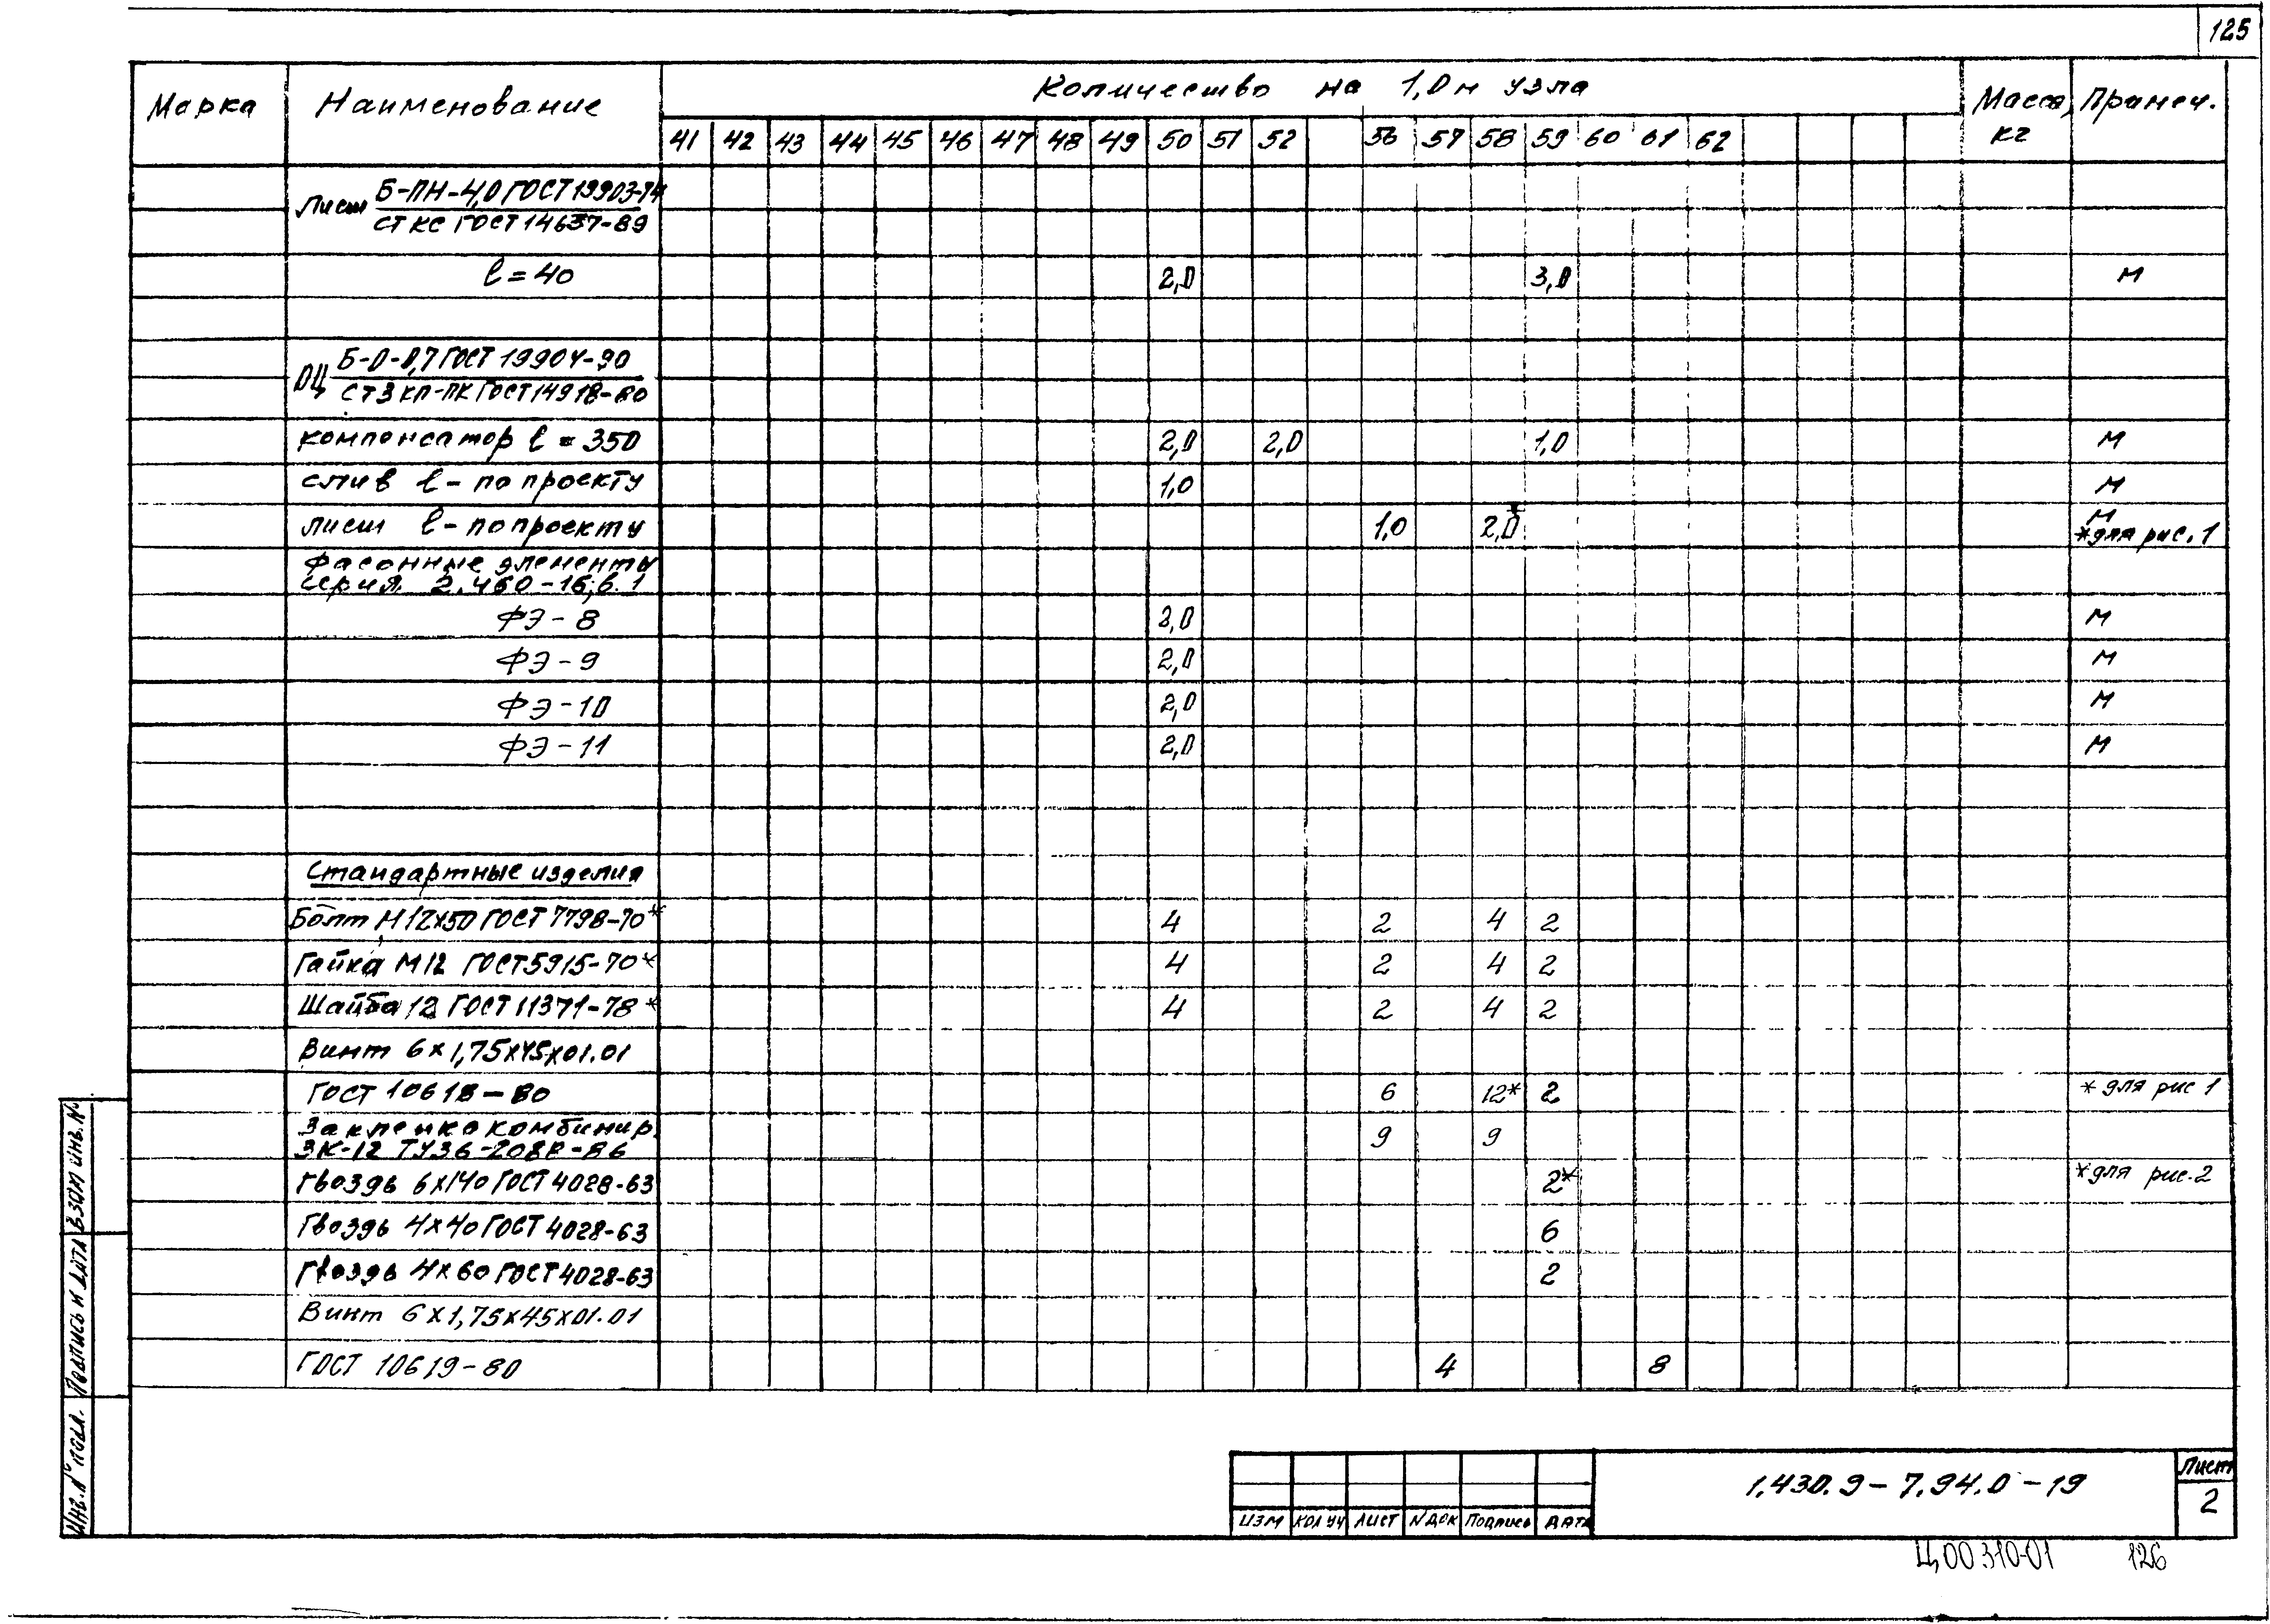 125
Марка Наименование Количество на 1,0 м узла Масса, кг Примеч.
41 42 43 44 45 46 47 48 49 50 51 52 56 57 58 59 60 61 62
Лист Б-ПН-4,0 ГОСТ 19903-74
СТ КС ГОСТ 14637-89
ℓ = 40 2,0 3,0 м
ОЦ Б-О-0,7 ГОСТ 19904-90
СТ3 КП-ПК ГОСТ 14918-80
компенсатор ℓ = 350 2,0 2,0 1,0 м
слив ℓ - по проекту 1,0 м
лист ℓ - по проекту 1,0 2,0* м
*для рис. 1
Фасонные элементы
серия 2.460-16; в. 1
ФЭ-8 2,0 м
ФЭ-9 2,0 м
ФЭ-10 2,0 м
ФЭ-11 2,0 м
Стандартные изделия
Болт М12х50 ГОСТ 7798-70* 4 2 4 2
Гайка М12 ГОСТ 5915-70* 4 2 4 2
Шайба 12 ГОСТ 11371-78* 4 2 4 2
Винт 6х1,75х45х01.01
ГОСТ 10618-80 6 12* 2 * для рис 1
Заклепка комбинир.
ЗК-12 ТУ36-2088-86 9 9
Гвоздь 6х140 ГОСТ 4028-63 2* *для рис. 2
Гвоздь 4х40 ГОСТ 4028-63 6
Гвоздь 4х60 ГОСТ 4028-63 2
Винт 6х1,75х45х01.01
ГОСТ 10619-80 4 8
Инв. № подл. Подпись и дата Взам инв. №
ИЗМ КОЛ УЧ ЛИСТ № ДОК Подпись ДАТА
1.430.9-7.94.0-19
Лист
2
Ц00310-01 126